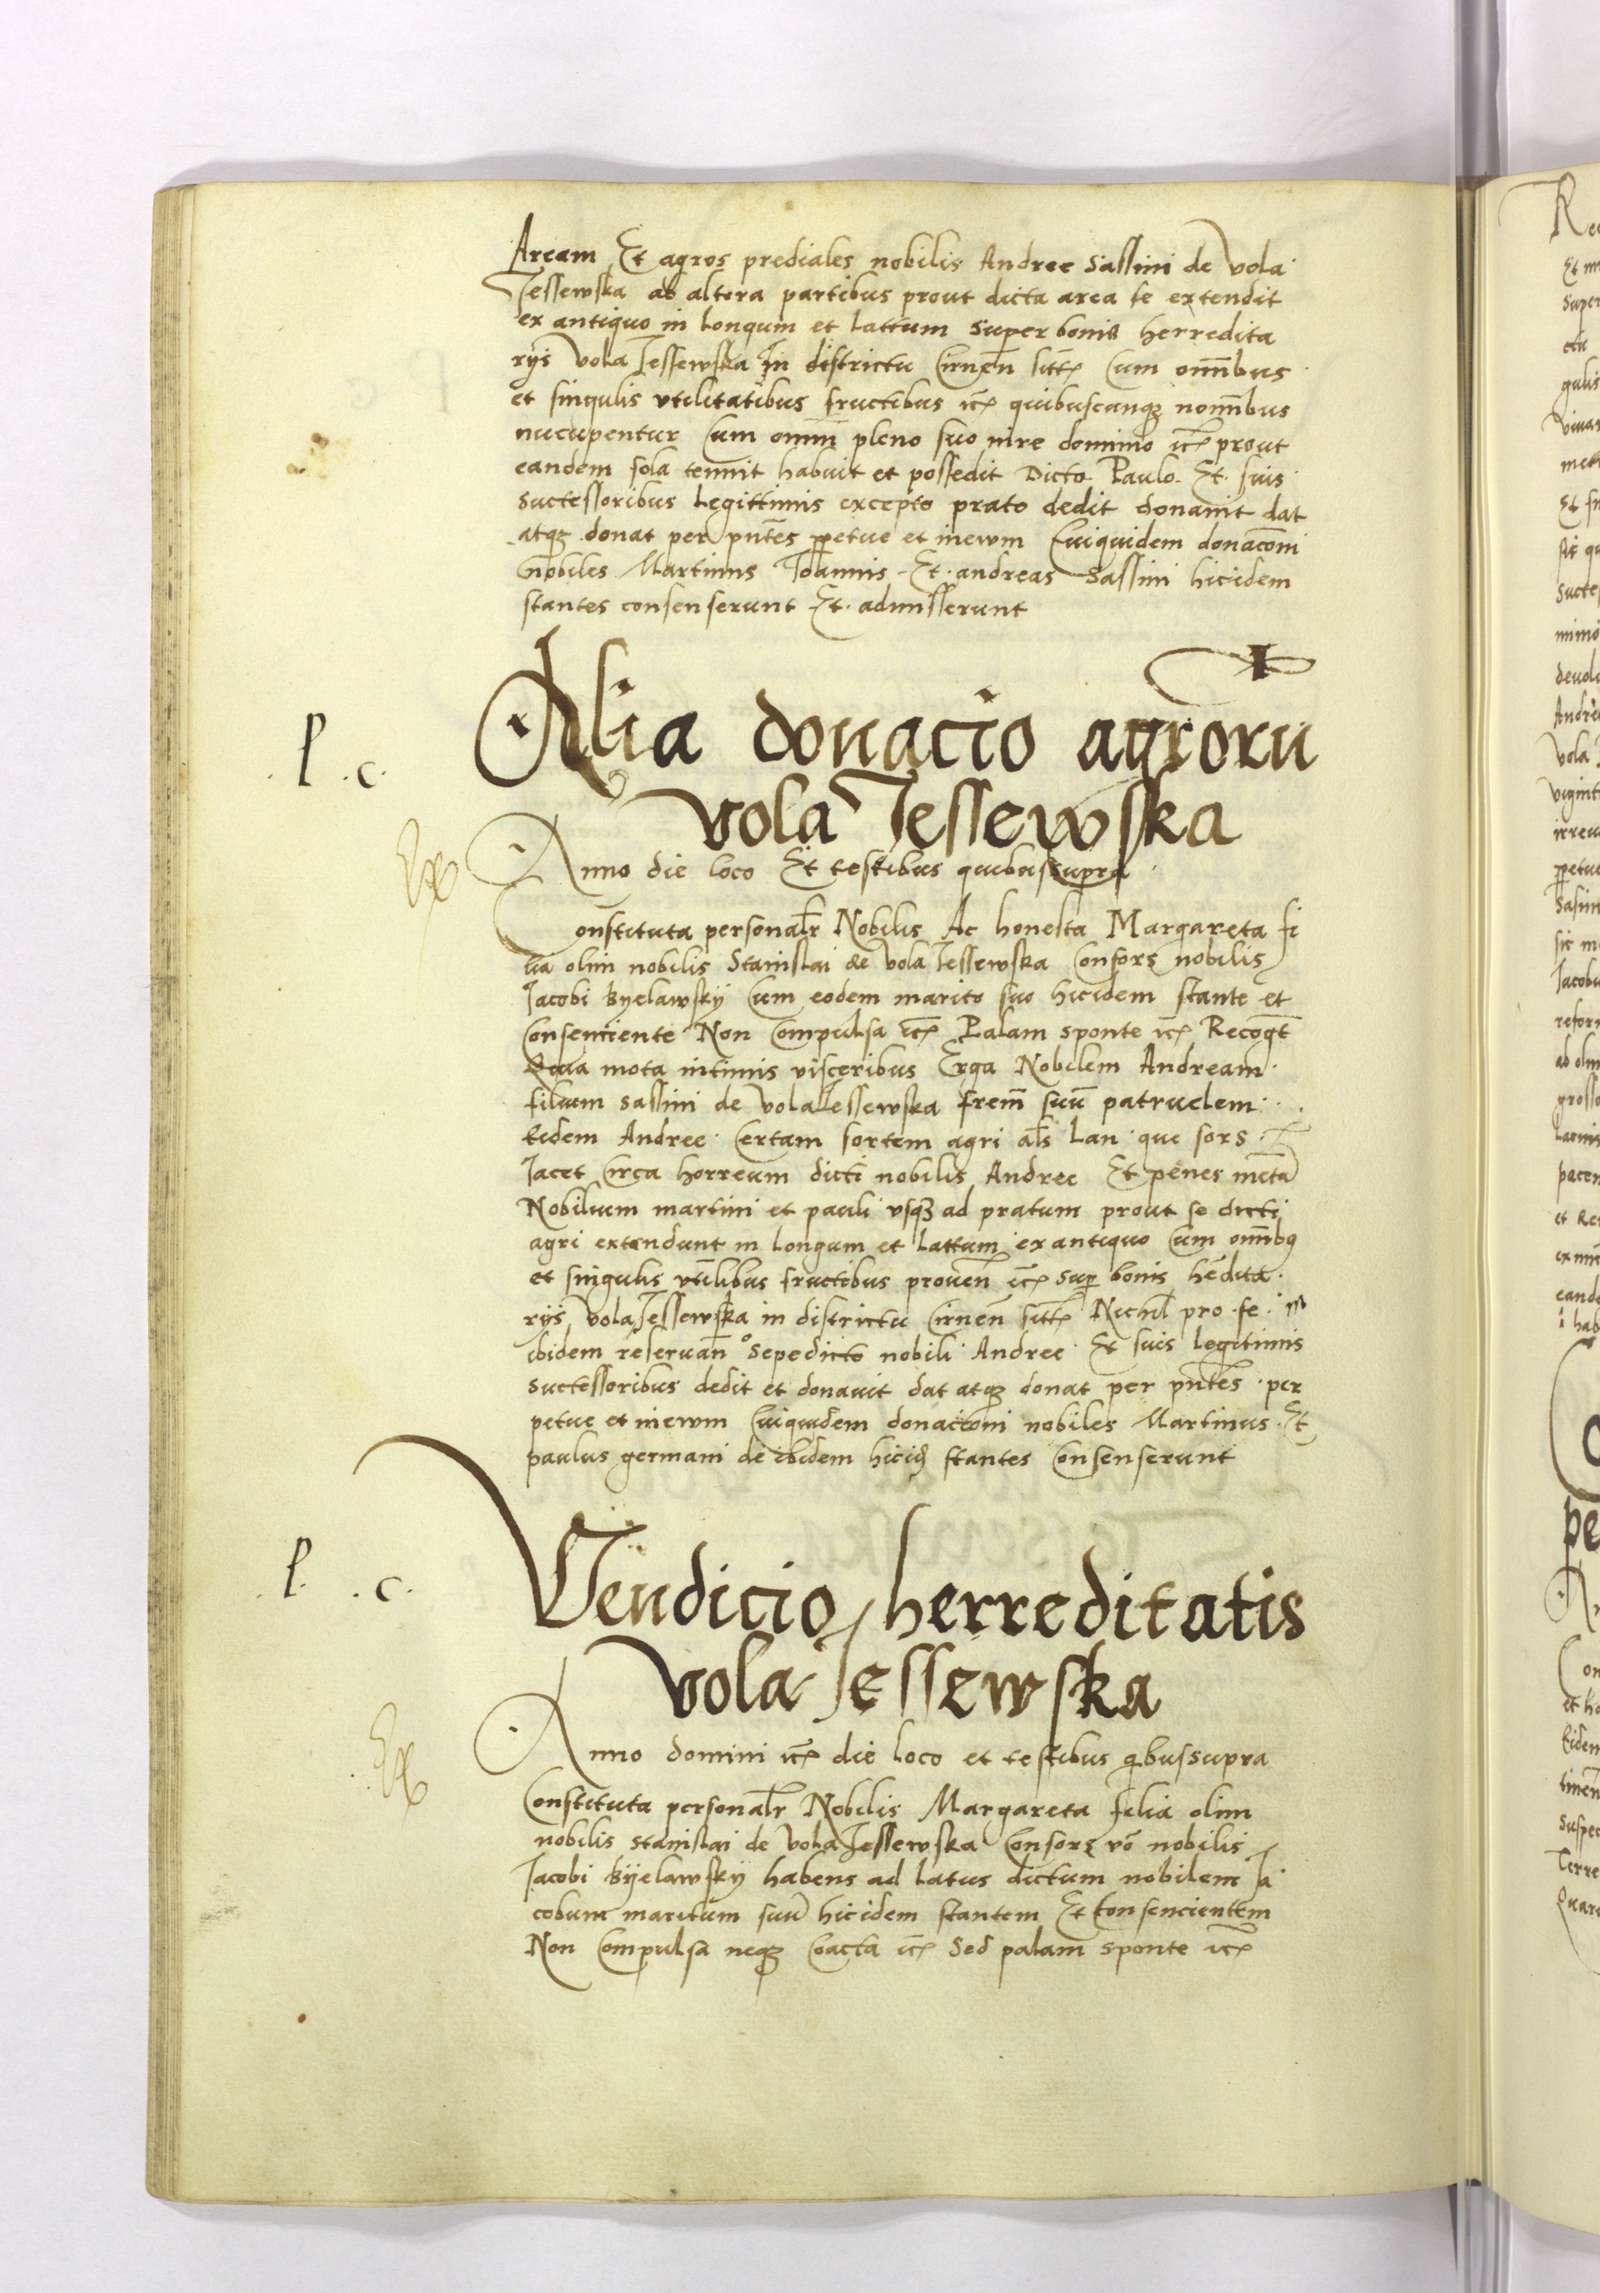 Aream Et agros prediales nobilis Andree Sassini de Vola
Jessewska ab altera partibus prout dicta area se extendit
ex antiquo in longum et lattum super bonis herredita
rijs Vola Jessewska In districtu Cirnen sitt Cum omnibus
et singulis vtilitatibus fructibus etc quibuscanqz nominibus
nucupentur Cum omni pleno suo iure dominio etc prout
eandem sola tenuit habuit et possedit Dicto Paulo Et suis
Suctessoribus Legittimis excepto prato dedit donauit dat
atqz donat per pntes ppetue et inewm Cuiquidem donacioni
Nobiles Martinus Joannis Et andreas Sassini hicidem
stantes consenserunt Et admisserunt
Alia donacio agrorū
Vola Jessewska
.P .c.
Anno die loco Et testibus quibussupra
Constituta personalr Nobilis Ac honesta Margareta fi
lia olim nobilis Stanislai de Vola Jessewska Consors nobilis
Jacobi Byelawskÿ Cum eodem marito suo hicidem stante et
Consenciente Non Compulsa etc Palam sponte etc Recogt
Quia mota intimis visceribus Erga Nobilem Andream
filium Sassini de Vola Jessewska frem suū patruelem
Eidem Andree Certam sortem agri als Lan que sors
Jacet Circa horreum dicti nobilis Andree Et penes meta
Nobilium martini et pauli vsqz ad pratum prout se dicti
agri extendunt in longum et lattum ex antiquo Cum omibq
et singulis vtilibus fructibus prouen etc Sup bonis hedita
rijs Vola Jessewska in districtu Cirnen sitt Nichil pro se
ibidem reseruan Sepedicto nobili Andree Et suis legitimis
Suctessoribus dedit et donauit dat atqz donat per pntes per
petue et inewm Cuiquidem donacioni nobiles Martinus Et
paulus germani de ibidem hicid stantes Consenserunt
Vendicio herreditatis
Vola Jessewska
.P. .c.
Anno domini etc die loco et testibus qibussupra
Constituta personalr Nobilis Margareta filia olim
nobilis Stanislai de Vola Jessewska Consors vo nobilis
Jacobi Byelawskÿ habens ad latus dictum nobilem Ja
cobum maritum suū hicidem stantem Et Consencientem
Non Compulsa neqz Coacta etc Sed palam sponte etc